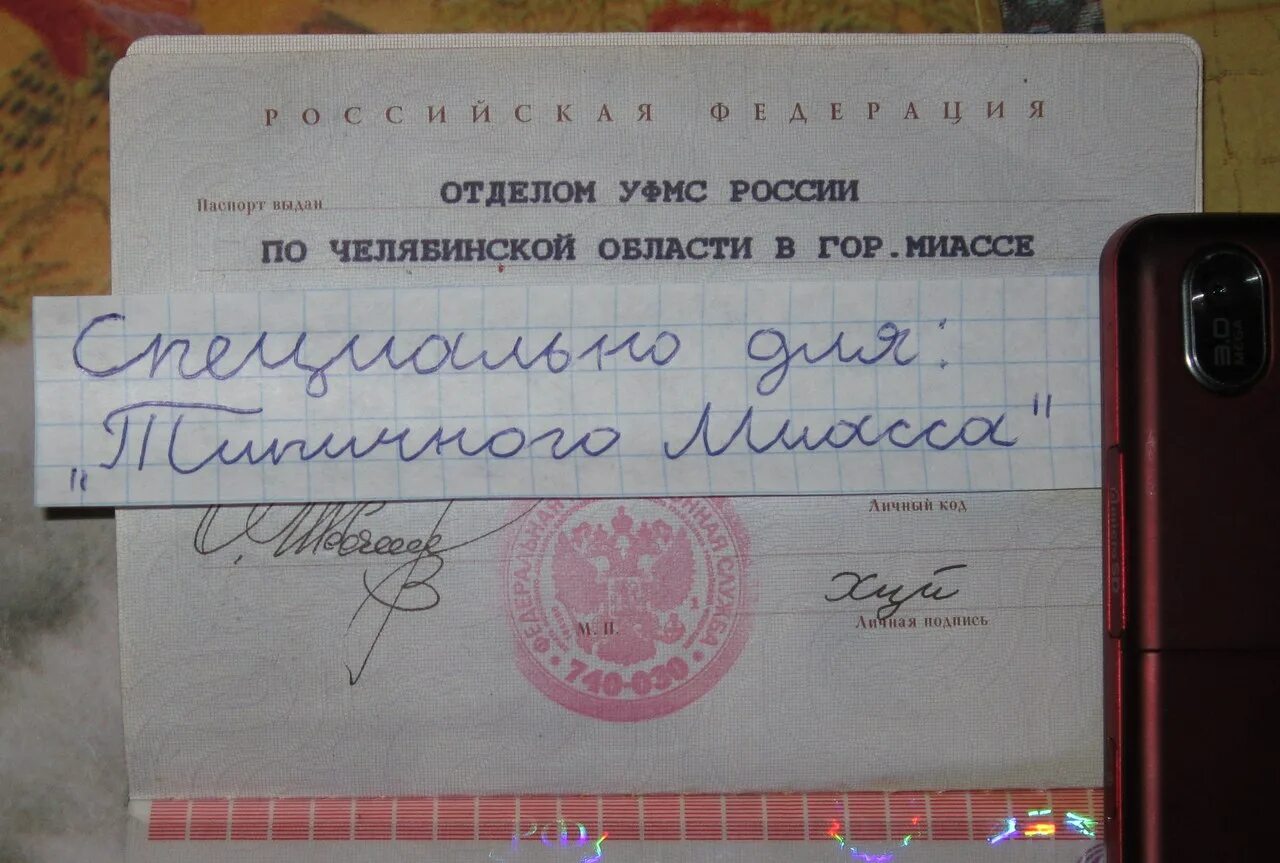 РОССИЙСКАЯ ФЕДЕРАЦИЯ
Паспорт выдан ОТДЕЛОМ УФМС РОССИИ
ПО ЧЕЛЯБИНСКОЙ ОБЛАСТИ В ГОР.МИАССЕ
Специально для:
„Типичного Миасса"
Личный код
хуй
Личная подпись
М. П.
ФЕДЕРАЛЬНАЯ СЛУЖБА
740-030
3.0
MEGA